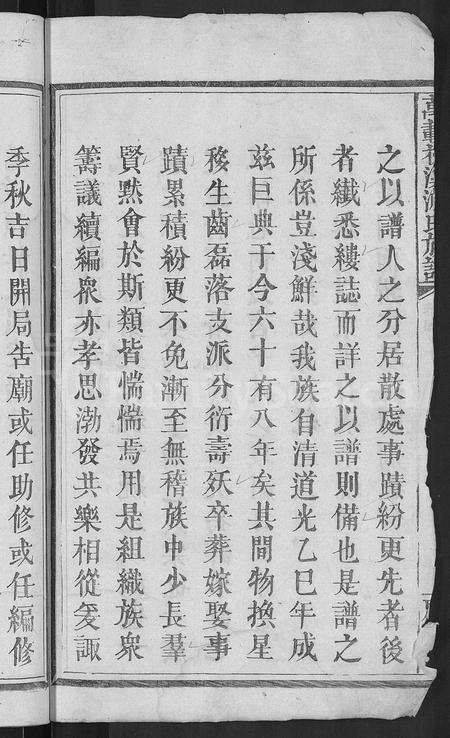 之以譜人之分居散處事蹟紛更先者後
者纖悉縷誌而詳之以譜則備也是譜之
所係豈淺鮮哉我族自清道光乙巳年成
茲巨典于今六十有八年矣其間物換星
移生齒磊落支派分衍壽殀卒葬嫁娶事
蹟累積紛更不免漸至無稽族中少長羣
賢默會於斯類皆惴惴焉用是組織族衆
籌議續編衆亦孝思渤發共樂相從爰諏
季秋吉日開局告廟或任助修或任編修